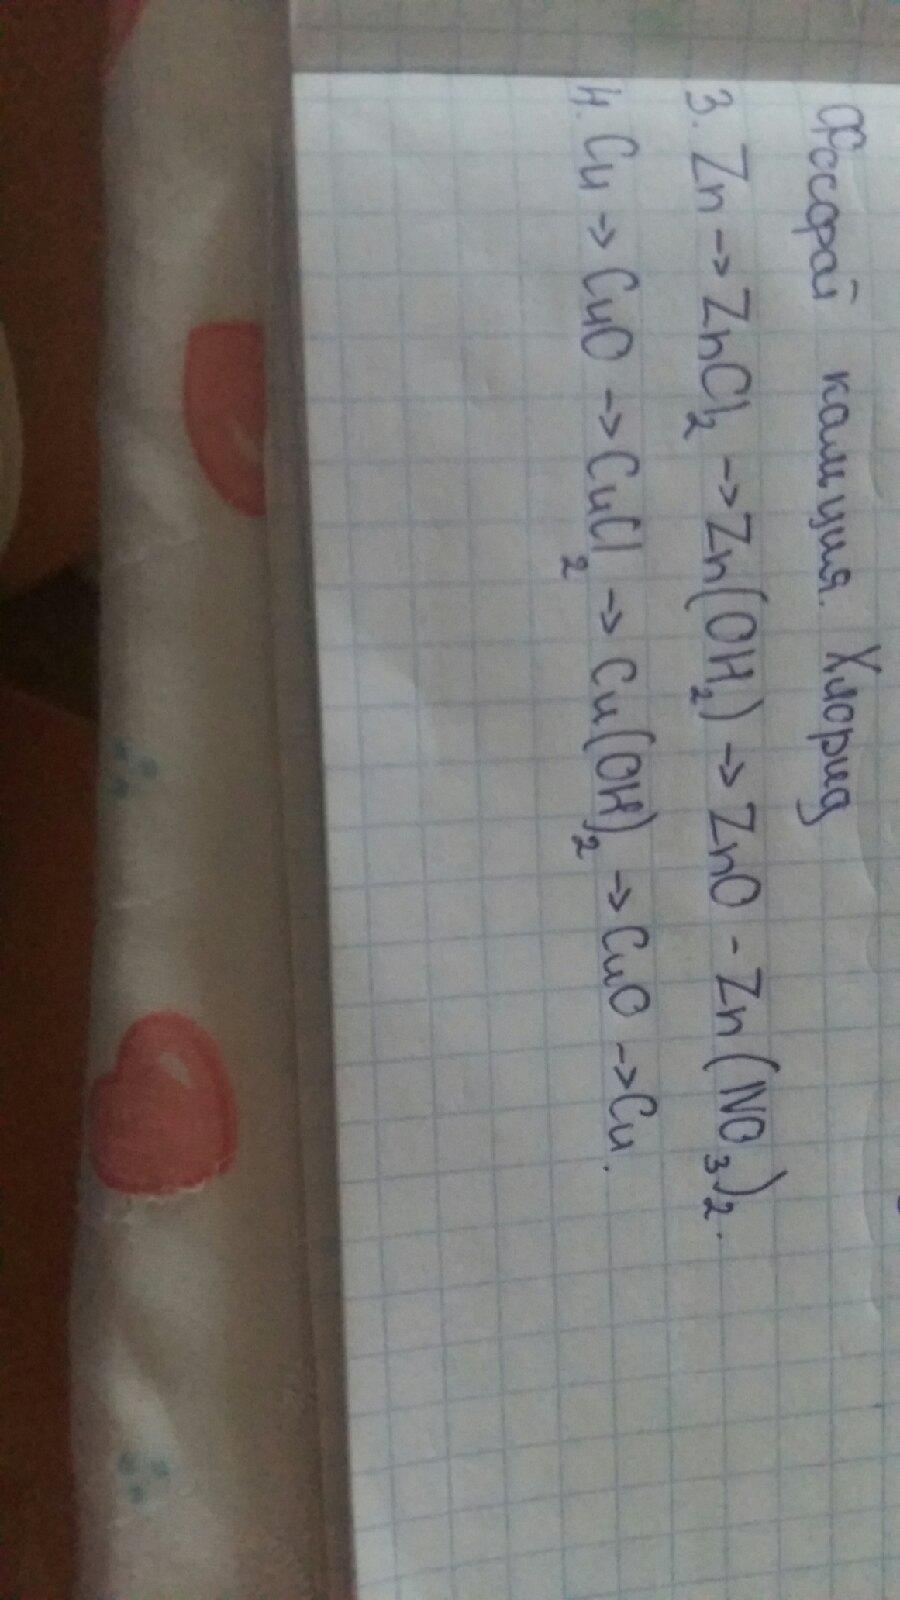 Фосфат кальция. Хлорид
3. Zn -> ZnCl₂ -> Zn(OH₂) -> ZnO - Zn(NO₃)₂.
4. Cu -> CuO -> CuCl₂ -> Cu(OH)₂ -> CuO -> Cu.